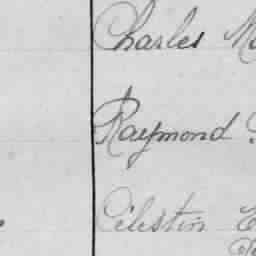 Charles
Raymond
Celestin